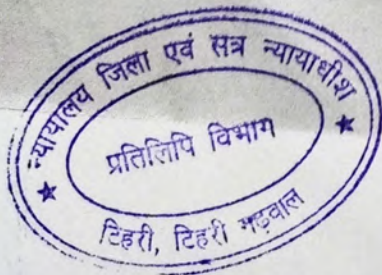 न्यायालय जिला एवं सत्र न्यायाधीश
प्रतिलिपि विभाग
टिहरी, टिहरी गढ़वाल